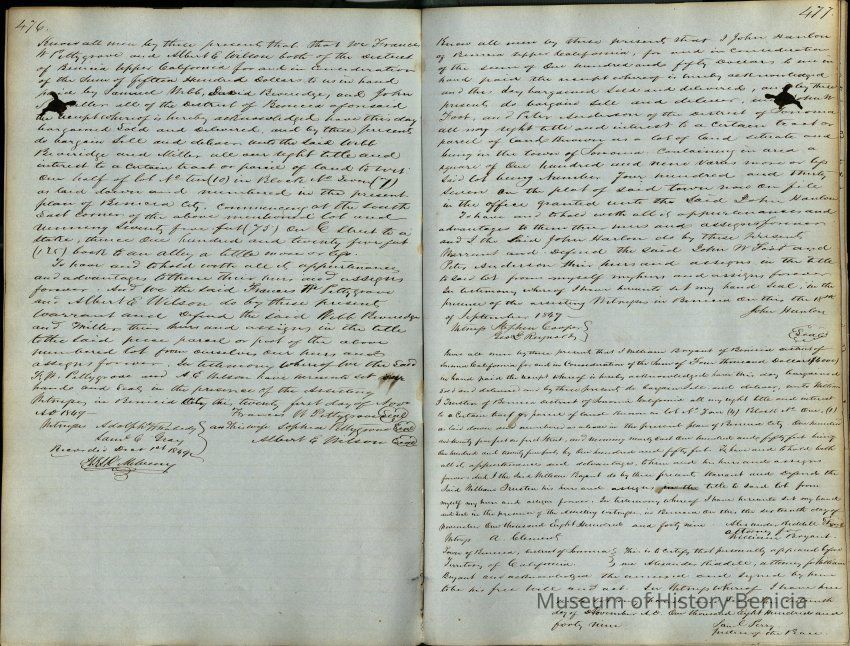 476.
Know all men by these presents that, that we Francis
W Pettygrove and Albert E Wilson both of the District
of Benicia Upper California for and in consideration
of the Sum of fifteen Hundred Dollars to us in hand
paid by Samuel Webb, David Beveridge, and John
Miller all of the District of Benicia aforesaid
the receipt whereof is hereby acknowledged have this day
bargained Sold and Delivered, and by these presents
do bargain Sell and deliver unto the said Webb
Beveridge and Miller all our right title and
interest to a certain tract or parcel of land to wit.
One half of lot No ten (10) in Block No
as laid down and mentioned in the present
plan of Benicia City. Commencing at the South
East corner of the above mentioned lot and
running Seventy five feet (75) On E Street to a
stake, thence One hundred and twenty five feet
(125) back to an alley, a little more or less.
To have and to hold with all it appurtenances
and advantages to them their heirs and assigns
forever. And We the said Francis W Pettygrove
and Albert E Wilson do by these present
warrant and defend the said Webb Beveridge
and Miller their heirs and assigns in the title
to the said piece parcel or part of the above
numbered lot from ourselves our heirs and
assigns forever. In testimony whereof We the Said
F. W. Pettygrove and A E Wilson have hereunto set our
hand and Seal, in the presence of the Assisting
Witness, in Benicia City the, twenty first day of Novr
AD 1849—
Francis W Pettygrove Seal
Witness Adolph
and his wife Sophia Pettygrove Seal
Saml C Gray
Albert E Wilson Seal
Recorded Decr 1st 1849
477
Know all men by these present, that I John Harlon
of Benicia Upper California, for and in Consideration
of the sum of One hundred and fifty Dollars to me in
hand paid the receipt whereof is hereby acknowledged
and this day bargained Sold and delivered, and by these
presents do bargain Sell and deliver, unto John W.
Foot, and Peter Anderson of the District of Sonoma
all my right title and interest to a Certain tract or
parcel of land Known as a lot of land situate and
being in the town of Sonoma Containing in area a
square of One hundred and nine Varas more or less
Said lot being Number four hundred and thirty
Seven on the plot of said town now on file
in the office granted unto the Said John Harlon
To have and to hold with all it appurtenances and
advantages to them their heirs and assigns forever
and I the Said John Harlon do by these present
Warrant and Defend the said John W Foot and
Peter Anderson their heirs and assigns in the title
to said lot from myself my heirs and assigns forever
In testimony whereof I have hereunto set my hand Seal, in the
presence of the assisting Witnesses in Benicia On this the 18th
of September 1849—
John Harlon
Witness Stephen Cooper
Seal
Know all men by these present that I William Bryant of Benicia district of
Sonoma California for and in Consideration of the Sum of Four thousand Dollars
in hand paid the receipt whereof is hereby acknowledged have this day bargained
Sold and delivered and by these present do bargain Sell and deliver, unto William
J Trusten of Benicia District of Sonoma California all my right title and interest
to a Certain tract or parcel of land Known as lot No Four (4) Block No One, (1)
as laid down and numbered as above in the present plan of Benicia City. One hundred
and twenty five feet on first Street, and Running
One hundred and twenty five feet, by One hundred and fifty feet. To have and to hold with
all it appurtenances and advantages to him and his heirs and assigns
forever. And I the Said William Bryant do by these present Warrant and Defend the
Said William Trusten his heirs and assigns in the title to Said lot from
myself my heirs and assigns forever. In testimony whereof I have hereunto set my hand
and Seal in the presence of the Assisting witness, in Benicia On this, the sixteenth day of
November One thousand Eight Hundred and forty nine
Alexander Riddell
Witness A. Clements
attorney for
William Bryant.
Town of Benicia, district of Sonoma
Territory of California.
This is to Certify that personally appeared before
me Alexander Riddell, attorney for William
Bryant and acknowledged the annexed and Signed by him
to be his free will and act. In Witness whereof I have here
day of November A.D. One thousand Eight Hundred and
forty nine
Museum of History Benicia